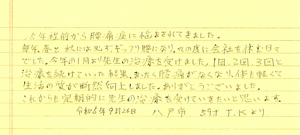 5年程前から腰痛症に悩まされてきました。
毎年、春と秋には必ずギックリ腰になり、その度に会社を休む日々
でした。今年の1月より先生の治療を受けました。1回、2回、3回と
治療を続けていった結果、あんなに腰痛がなくなり、体も軽くて
生活の質が断然向上しました。ありがとうございました。
これからも定期的に先生の治療を受けていきたいと思います。
令和5年9月26日 八戸市 59才 T.Kより